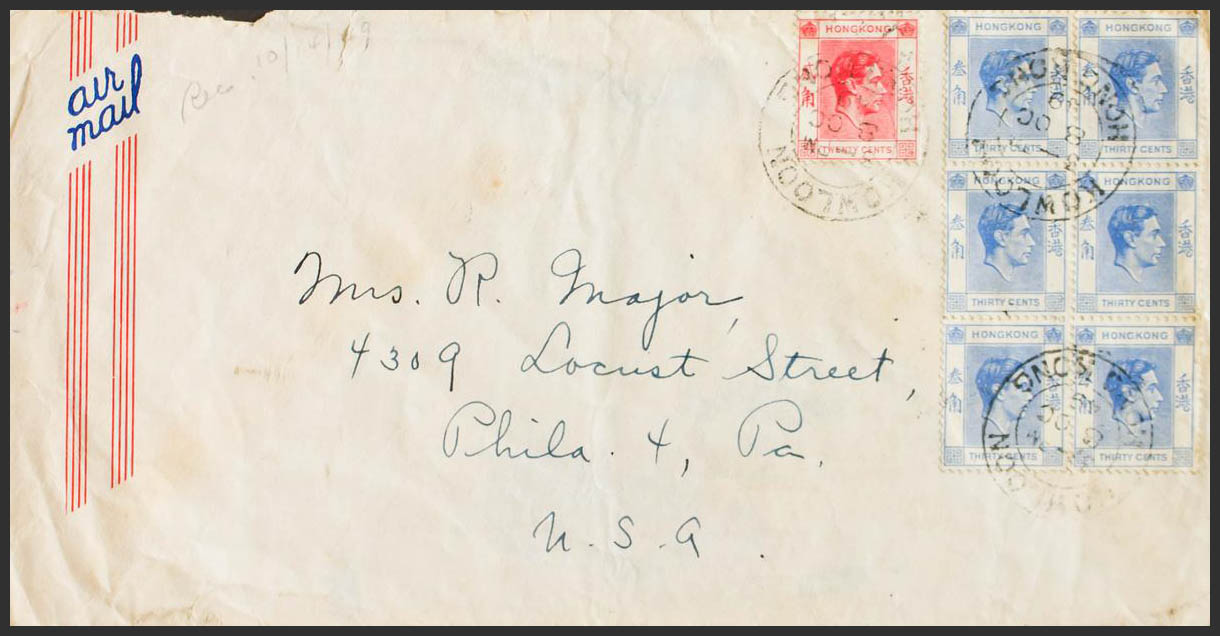 air
mail
Rec 10/14/49
HONGKONG
香港
TWENTY CENTS
HONGKONG
叁角
香港
THIRTY CENTS
HONGKONG
叁角
香港
THIRTY CENTS
HONGKONG
叁角
香港
THIRTY CENTS
HONGKONG
叁角
香港
THIRTY CENTS
HONGKONG
叁角
香港
THIRTY CENTS
HONGKONG
叁角
香港
THIRTY CENTS
KOWLOON
KOWLOON
HONG KONG
8 OC
Mrs. R. Major,
4309 Locust Street,
Phila. 4, Pa.
U.S.A.